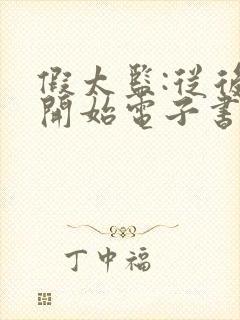 假太監:從後
開始電子書
丁中福